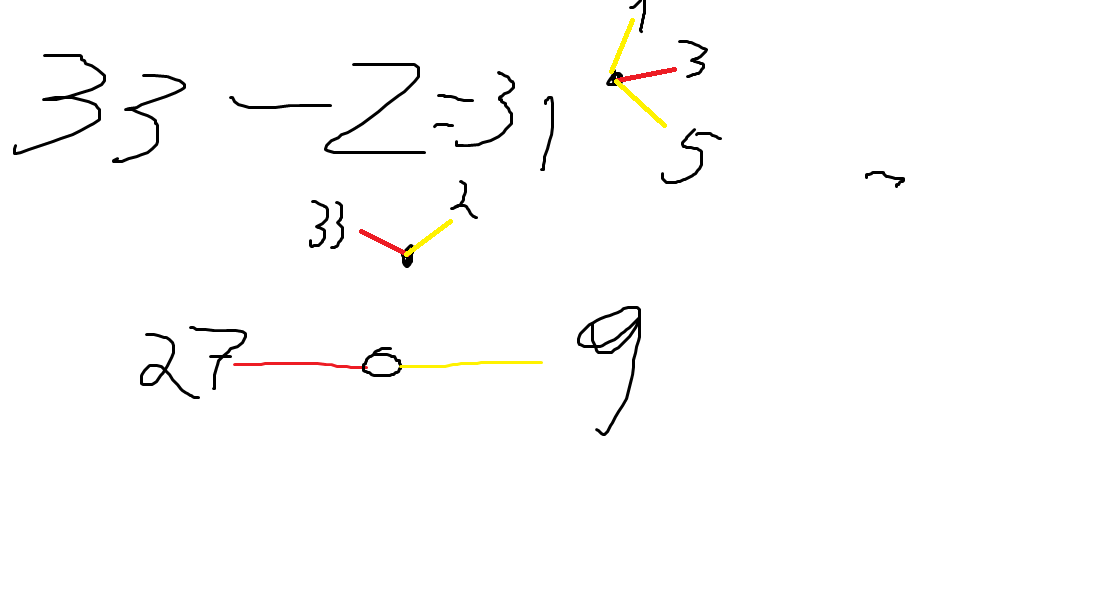 33 - 2 = 31
1
3
5
33 2
27 9